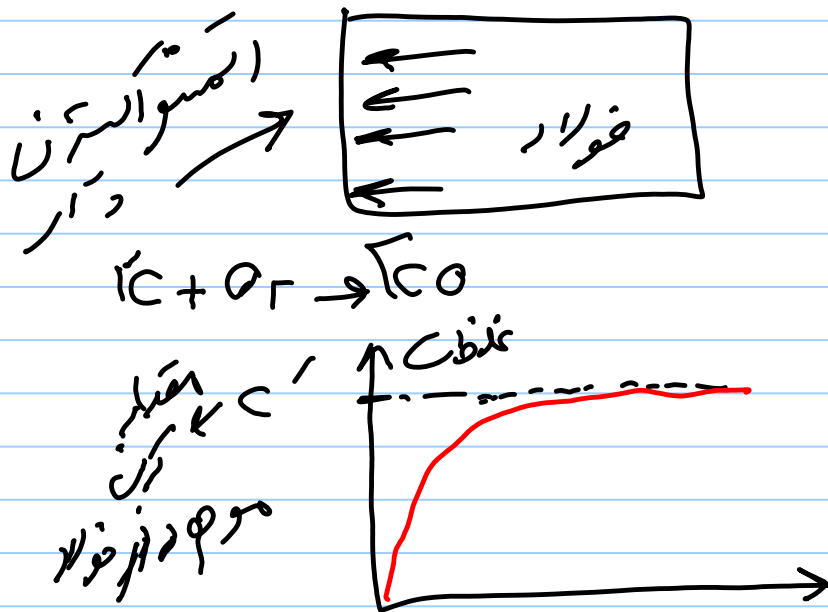 اتمسفر اکسیژن
دار
فولاد
۲C + O۲ → ۲CO
غلظت C
C
مقدار
کربن
موجود در فولاد